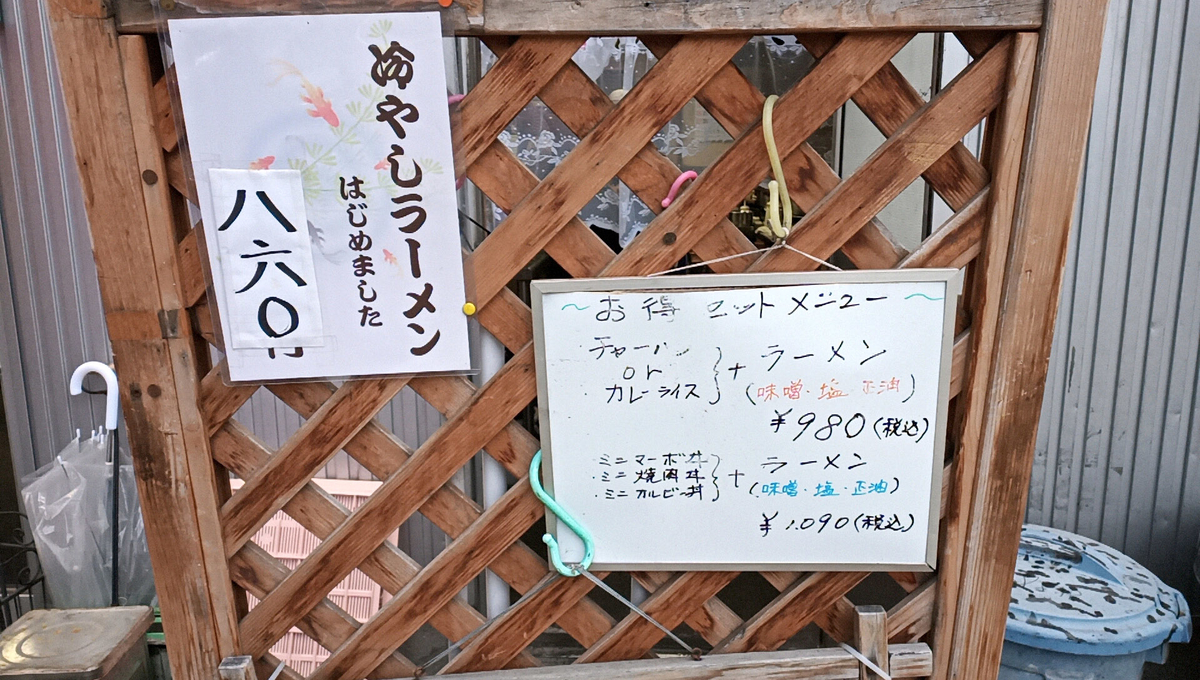 冷やしラーメン
はじめました
八六〇
～お得セットメニュー～
・チャーハン
or
・カレーライス
+ ラーメン
(味噌・塩・正油)
¥980(税込)
・ミニマーボ丼
・ミニ焼肉丼
・ミニカルビー丼
+ ラーメン
(味噌・塩・正油)
¥1.090(税込)